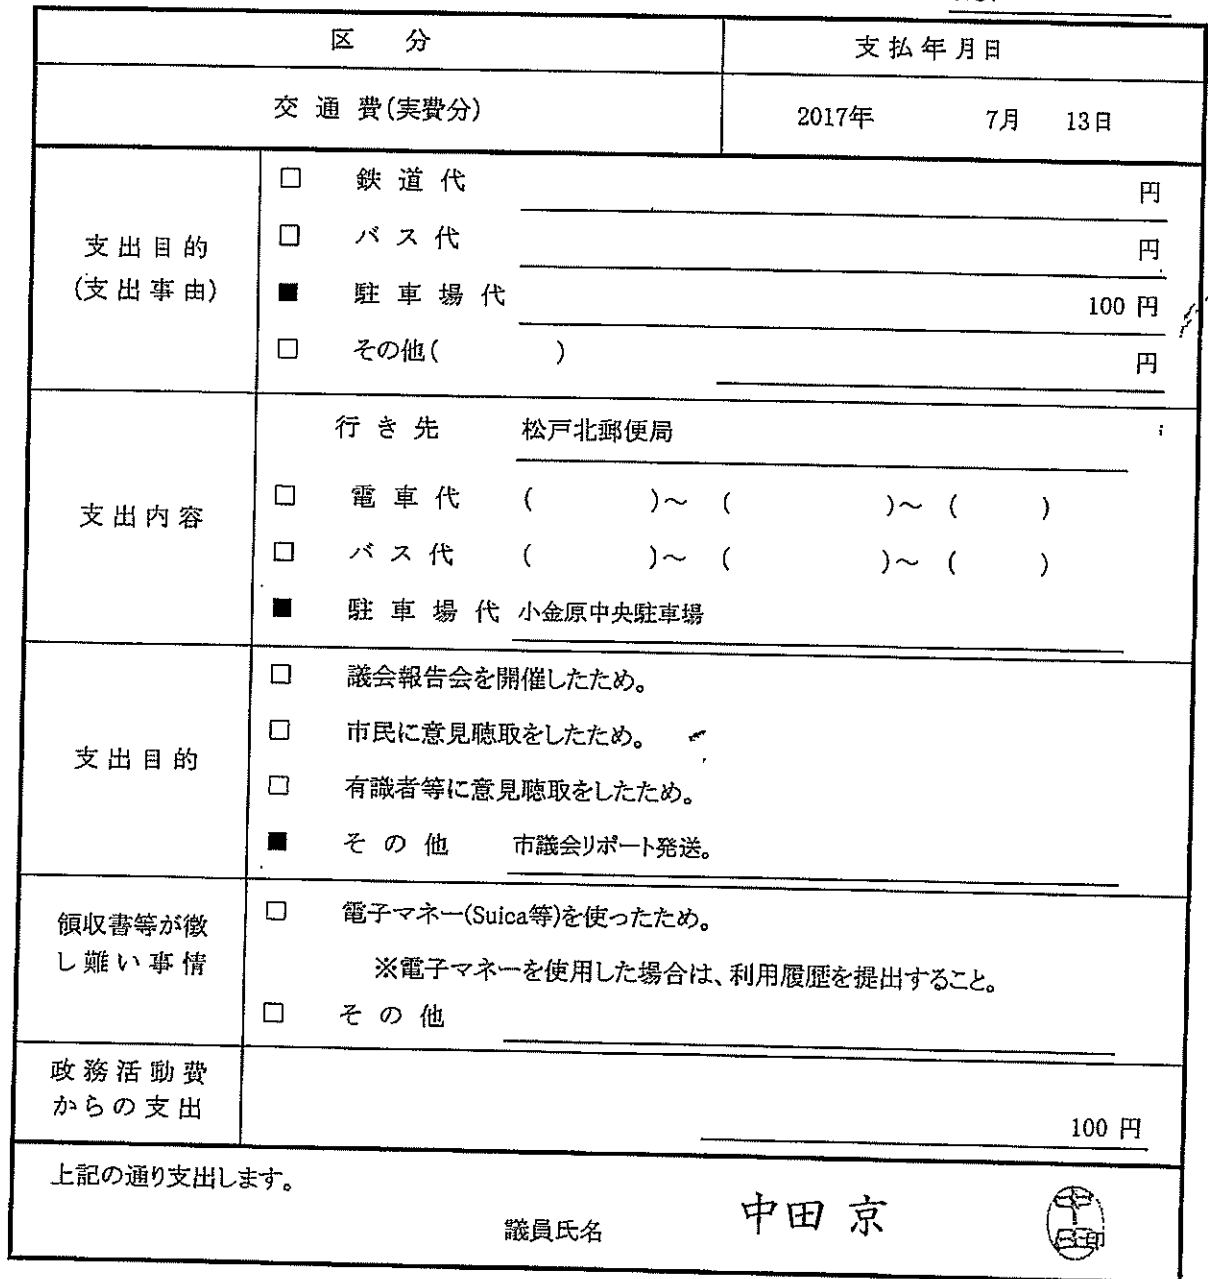 区 分 支払年月日
交通費(実費分) 2017年 7月 13日
支出目的
(支出事由)
□ 鉄道代 円
□ バス代 円
■ 駐車場代 100 円
□ その他( ) 円
支出内容
行き先 松戸北郵便局
□ 電車代 ( )～ ( )～ ( )
□ バス代 ( )～ ( )～ ( )
■ 駐車場代 小金原中央駐車場
支出目的
□ 議会報告会を開催したため。
□ 市民に意見聴取をしたため。
□ 有識者等に意見聴取をしたため。
■ その他 市議会リポート発送。
領収書等が徴
し難い事情
□ 電子マネー(Suica等)を使ったため。
※電子マネーを使用した場合は、利用履歴を提出すること。
□ その他
政務活動費
からの支出
100 円
上記の通り支出します。
議員氏名 中田 京 印